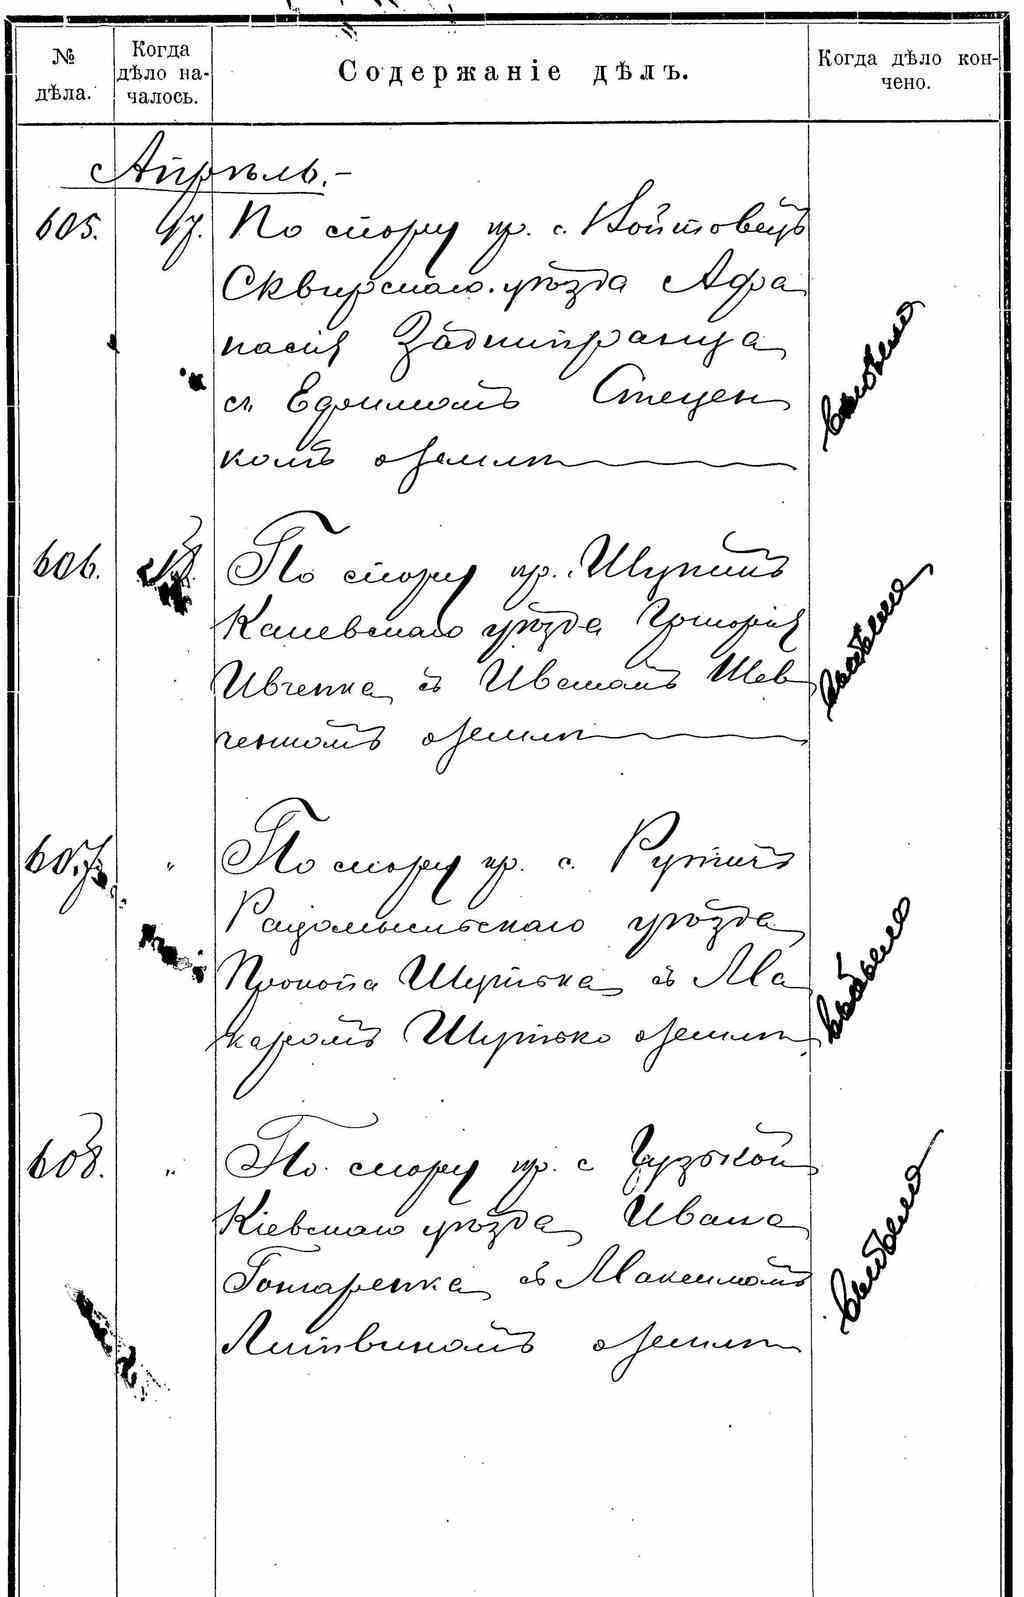 № дѣла.
Когда дѣло началось.
Содержаніе дѣлъ.
Когда дѣло кончено.
Апрѣль.-
605. 17. По спору кр. с. Войтовецъ
Сквирскаго уѣзда Афа
насія Заднипранца
съ Ефимомъ Стецен
комъ о землѣ
606. 18. По спору кр.
Каневскаго уѣзда Григорія
Ивченка съ Иваномъ Шев
ченкомъ о землѣ
607. " По спору кр. с.
Радомысльскаго уѣзда
Прокопа Шутька съ Ма
каромъ Шутько о землѣ
608. " По спору кр. с.
Кіевскаго уѣзда Ивана
Гончаренка съ Максимомъ
Литвиномъ о землѣ